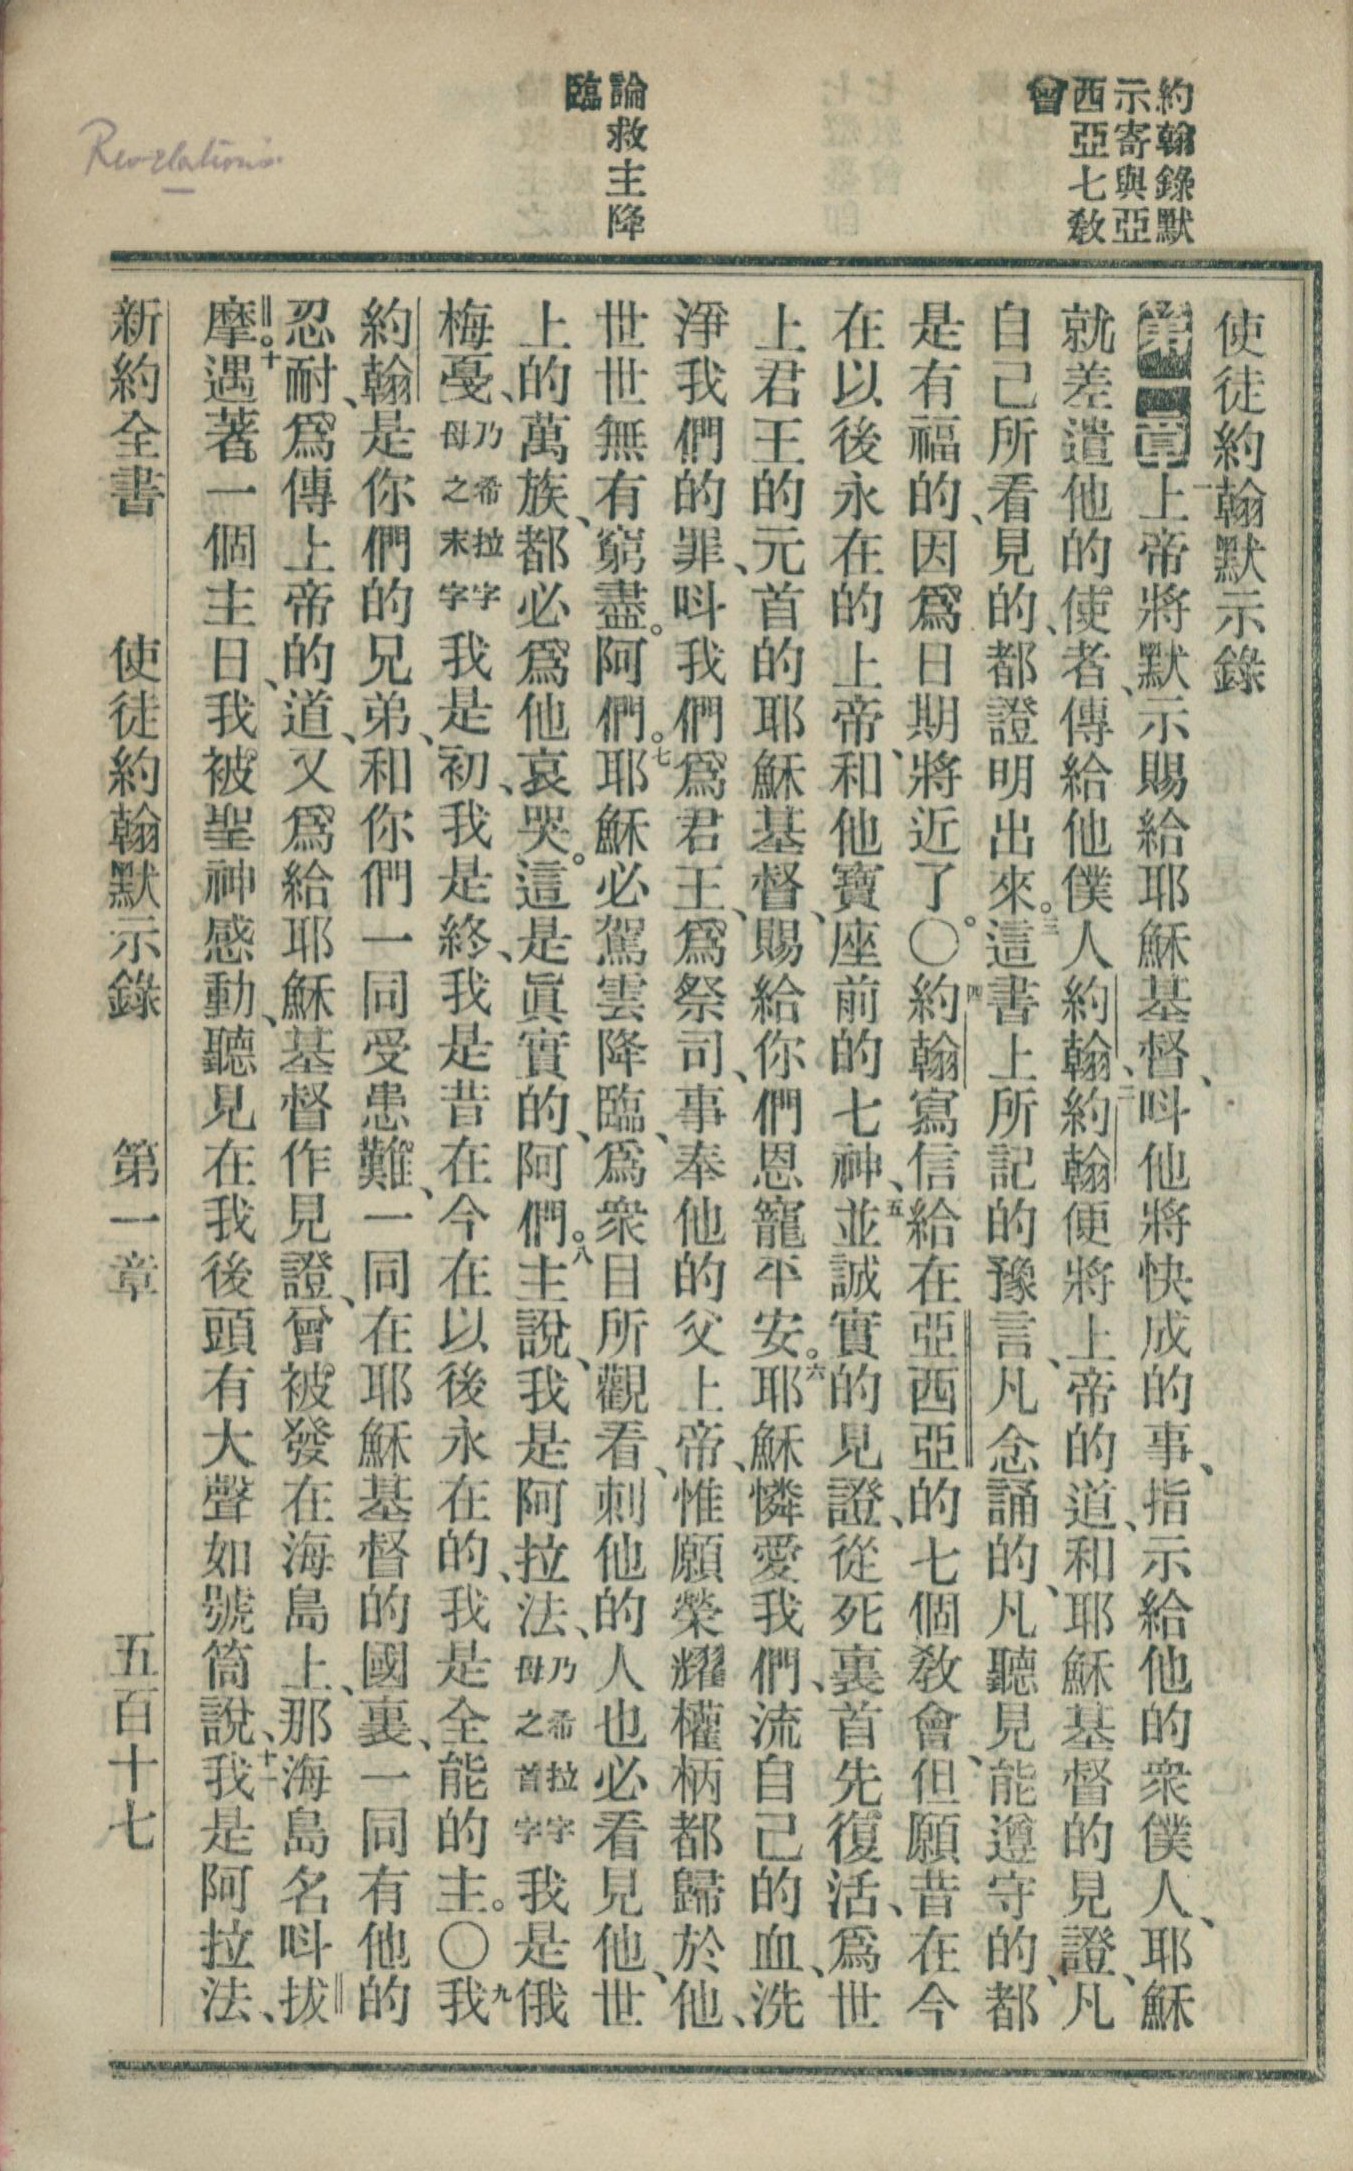 約翰錄默
示寄與亞
西亞七教
會
論救主降
臨
Revelations
使徒約翰默示錄
第一章一上帝將默示賜給耶穌基督、呌他將快成的事、指示給他的衆僕人、耶穌
就差遣他的使者、傳給他僕人約翰、二約翰便將上帝的道、和耶穌基督的見證、凡
自己所看見的、都證明出來。三這書上所記的豫言、凡念誦的、凡聽見能遵守的、都
是有福的、因爲日期將近了。〇四約翰寫信給在亞西亞的七個敎會、但願昔在今
在以後永在的上帝、和他寶座前的七神、五並誠實的見證、從死裏首先復活、爲世
上君王的元首的耶穌基督、賜給你們恩寵平安。六耶穌憐愛我們、流自己的血、洗
淨我們的罪、呌我們爲君王、爲祭司、事奉他的父上帝、惟願榮耀權柄都歸於他、
世世無有窮盡。阿們。七耶穌必駕雲降臨、爲衆目所觀看、刺他的人也必看見他、世
上的萬族、都必爲他哀哭。這是眞實的、阿們。八主說、我是阿拉法、乃希拉字母之首字我是俄
梅戞、乃希拉字母之末字我是初、我是終、我是昔在今在以後永在的、我是全能的主。〇九我
約翰、是你們的兄弟、和你們一同受患難、一同在耶穌基督的國裏、一同有他的
忍耐、爲傳上帝的道、又爲給耶穌基督作見證、曾被發在海島上、那海島名呌拔
摩。十遇著一個主日、我被聖神感動、聽見在我後頭有大聲如號筒說、十一我是阿拉法、
新約全書 使徒約翰默示錄 第一章 五百十七